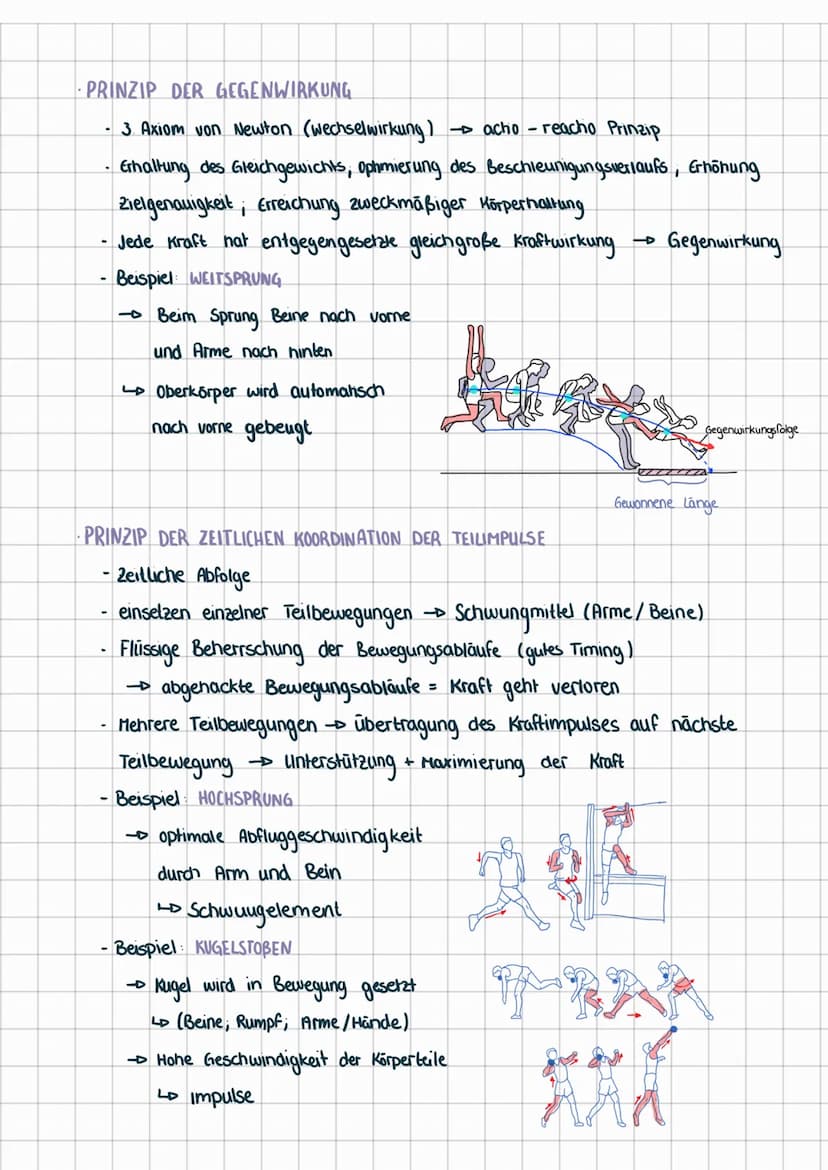 · PRINZIP DER GEGENWIRKUNG
- 3 Axiom von Newton (Wechselwirkung) → actio - reactio Prinzip
- Erhaltung des Gleichgewichts, Optimierung des Beschleunigungsverlaufs, Erhöhung
Zielgenauigkeit, Erreichung zweckmäßiger Körperhaltung
- Jede Kraft hat entgegengesetzte gleichgroße Kraftwirkung → Gegenwirkung
- Beispiel: WEITSPRUNG
→ Beim Sprung Beine nach vorne
und Arme nach hinten
↳ Oberkörper wird automatisch
nach vorne gebeugt
Gegenwirkungsfolge
Gewonnene Länge
· PRINZIP DER ZEITLICHEN KOORDINATION DER TEILIMPULSE
- Zeitliche Abfolge
- einsetzen einzelner Teilbewegungen → Schwungmittel (Arme/Beine)
- Flüssige Beherrschung der Bewegungsabläufe (gutes Timing)
→ abgehackte Bewegungsabläufe = Kraft geht verloren
- Mehrere Teilbewegungen → übertragung des Kraftimpulses auf nächste
Teilbewegung → Unterstützung + Maximierung der Kraft
- Beispiel: HOCHSPRUNG
→ optimale Abfluggeschwindigkeit
durch Arm und Bein
↳ Schwuugelement
- Beispiel: KUGELSTOßEN
→ Kugel wird in Bewegung gesetzt
↳ (Beine; Rumpf; Arme/Hände)
→ Hohe Geschwindigkeit der Körperteile
↳ Impulse